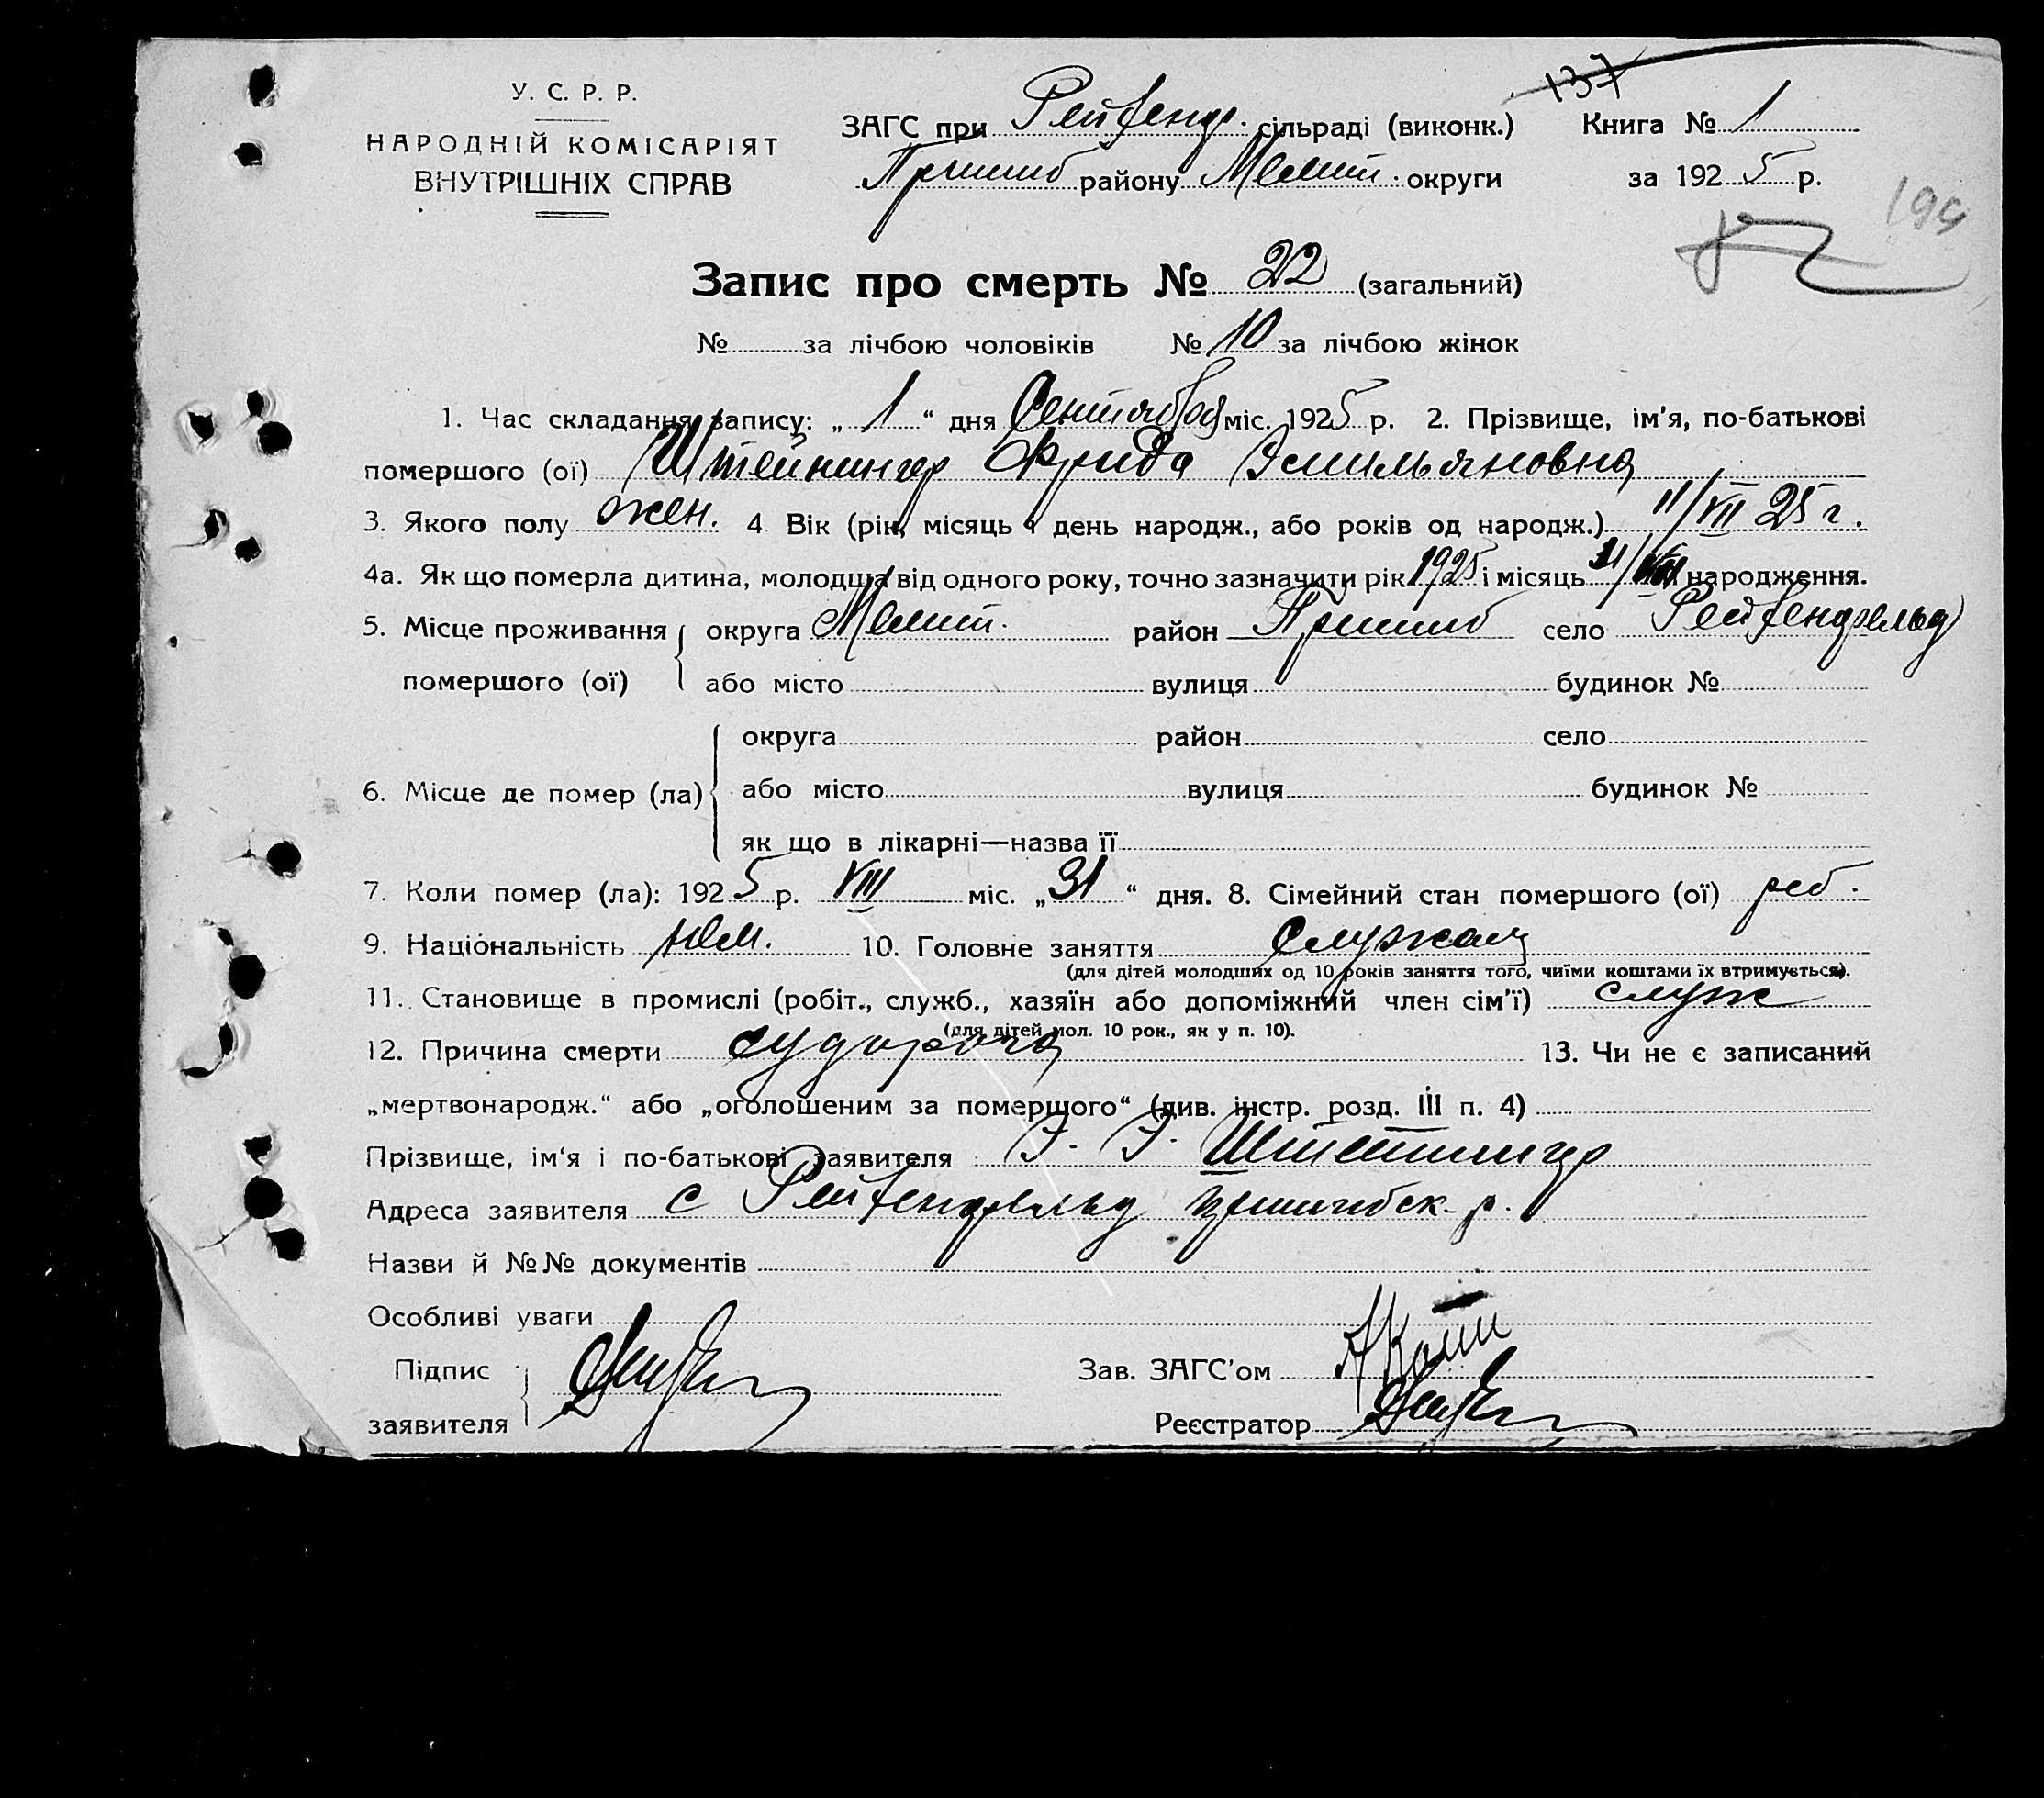 137
У. С. Р. Р.
НАРОДНІЙ КОМІСАРІЯТ
ВНУТРІШНІХ СПРАВ
ЗАГС при Рейхенф. сільраді (виконк.) Книга № 1
Пришиб району Мелит. округи за 1925 р.
199
Запис про смерть № 22 (загальний)
№ за лічбою чоловіків № 10 за лічбою жінок
1. Час складання запису: „ 1 “ дня Сентября міс. 1925 р. 2. Прізвище, ім'я, по-батькові
помершого (ої) Штейнингер Фрида Эмильяновна
3. Якого полу жен. 4 Вік (рік, місяць і день народж., або років од народж.) 11/VII 25 г.
4а. Як що померла дитина, молодша від одного року, точно зазначити рік 1925 і місяць народження.
5. Місце проживання округа Мелит. район Пришиб село Рейхенфельд
помершого (ої) або місто вулиця будинок №
округа район село
6. Місце де помер (ла) або місто вулиця будинок №
як що в лікарні—назва її
7. Коли помер (ла): 1925 р. VIII міс. „ 31 “ дня. 8. Сімейний стан помершого (ої) реб.
9. Національність нем. 10. Головне заняття служащ
(для дітей молодших од 10 років заняття того, чиїми коштами їх втримується).
11. Становище в промислі (робіт., служб., хазяїн або допоміжний член сім'ї) служ
(для дітей мол. 10 рок., як у п. 10).
12. Причина смерти судорога 13. Чи не є записаний
„мертвонародж.“ або „оголошеним за помершого“ (див. інстр. розд. III п. 4)
Прізвище, ім'я і по-батькові заявителя Э. Э. Штейнингер
Адреса заявителя с Рейхенфельд Пришибск. р.
Назви й №№ документів
Особливі уваги
Підпис Зав. ЗАГС'ом
заявителя Реєстратор